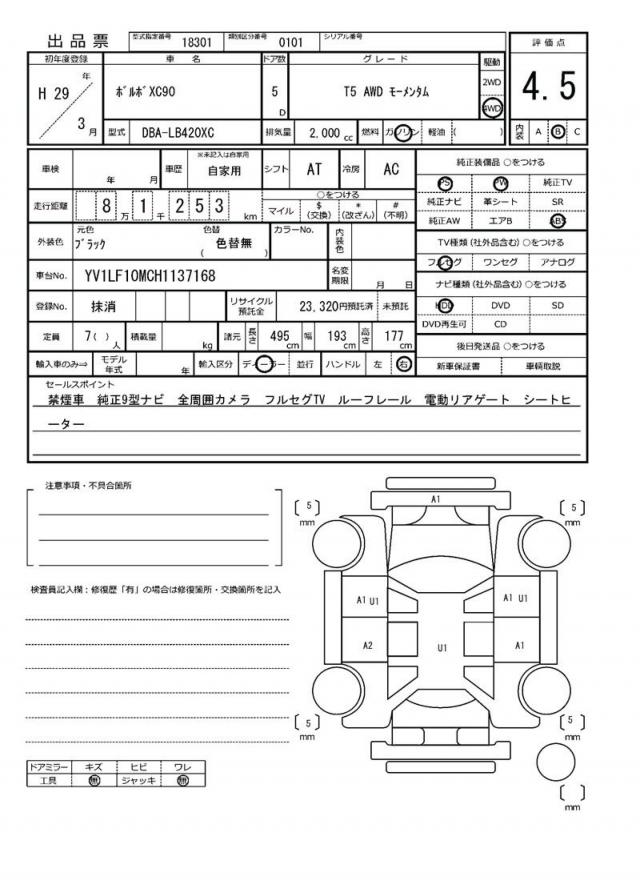 出品票
型式指定番号 18301 類別区分番号 0101 シリアル番号
評価点
4.5
内装 A B C
初年度登録 車名 ドア数 グレード 駆動
H 29 年 3 月
ﾎﾞﾙﾎﾞXC90
5 D
T5 AWD ﾓｰﾒﾝﾀﾑ
2WD
4WD
型式 DBA-LB420XC 排気量 2,000 cc 燃料 ガソリン 軽油 ( )
車検 年 月 車歴 ※未記入は自家用 自家用 シフト AT 冷房 AC
走行距離 8 万 1 千 2 5 3 km
○をつける
マイル $ (交換) * (改ざん) # (不明)
外装色 元色 ﾌﾞﾗｯｸ 色替 ( 色替無 ) カラーNo. 内装色
車台No. YV1LF10MCH1137168 名変期限 月 日
登録No. 抹消 リサイクル預託金 23,320円預託済 未預託
定員 7( ) 人 積載量 kg 諸元 長さ 495 cm 幅 193 cm 高さ 177 cm
輸入車のみ⇒ モデル年式 年 輸入区分 ディーラー 並行 ハンドル 左 右
純正装備品 ○をつける
PS PW 純正TV
純正ナビ 革シート SR
純正AW エアB ABS
TV種類 (社外品含む) ○をつける
フルセグ ワンセグ アナログ
ナビ種類 (社外品含む) ○をつける
HDD DVD SD
DVD再生可 CD
後日発送品 ○をつける
新車保証書 車輌取説
セールスポイント
禁煙車 純正9型ナビ 全周囲カメラ フルセグTV ルーフレール 電動リアゲート シートヒ
ーター
注意事項・不具合箇所
検査員記入欄：修復歴「有」の場合は修復箇所・交換箇所を記入
ドアミラー キズ ヒビ ワレ
工具 無 ジャッキ 無
A1
〔 5 〕 mm
〔 5 〕 mm
A1 U1
A1 U1
A2
U1
A1
〔 5 〕 mm
〔 5 〕 mm
〔 〕 mm